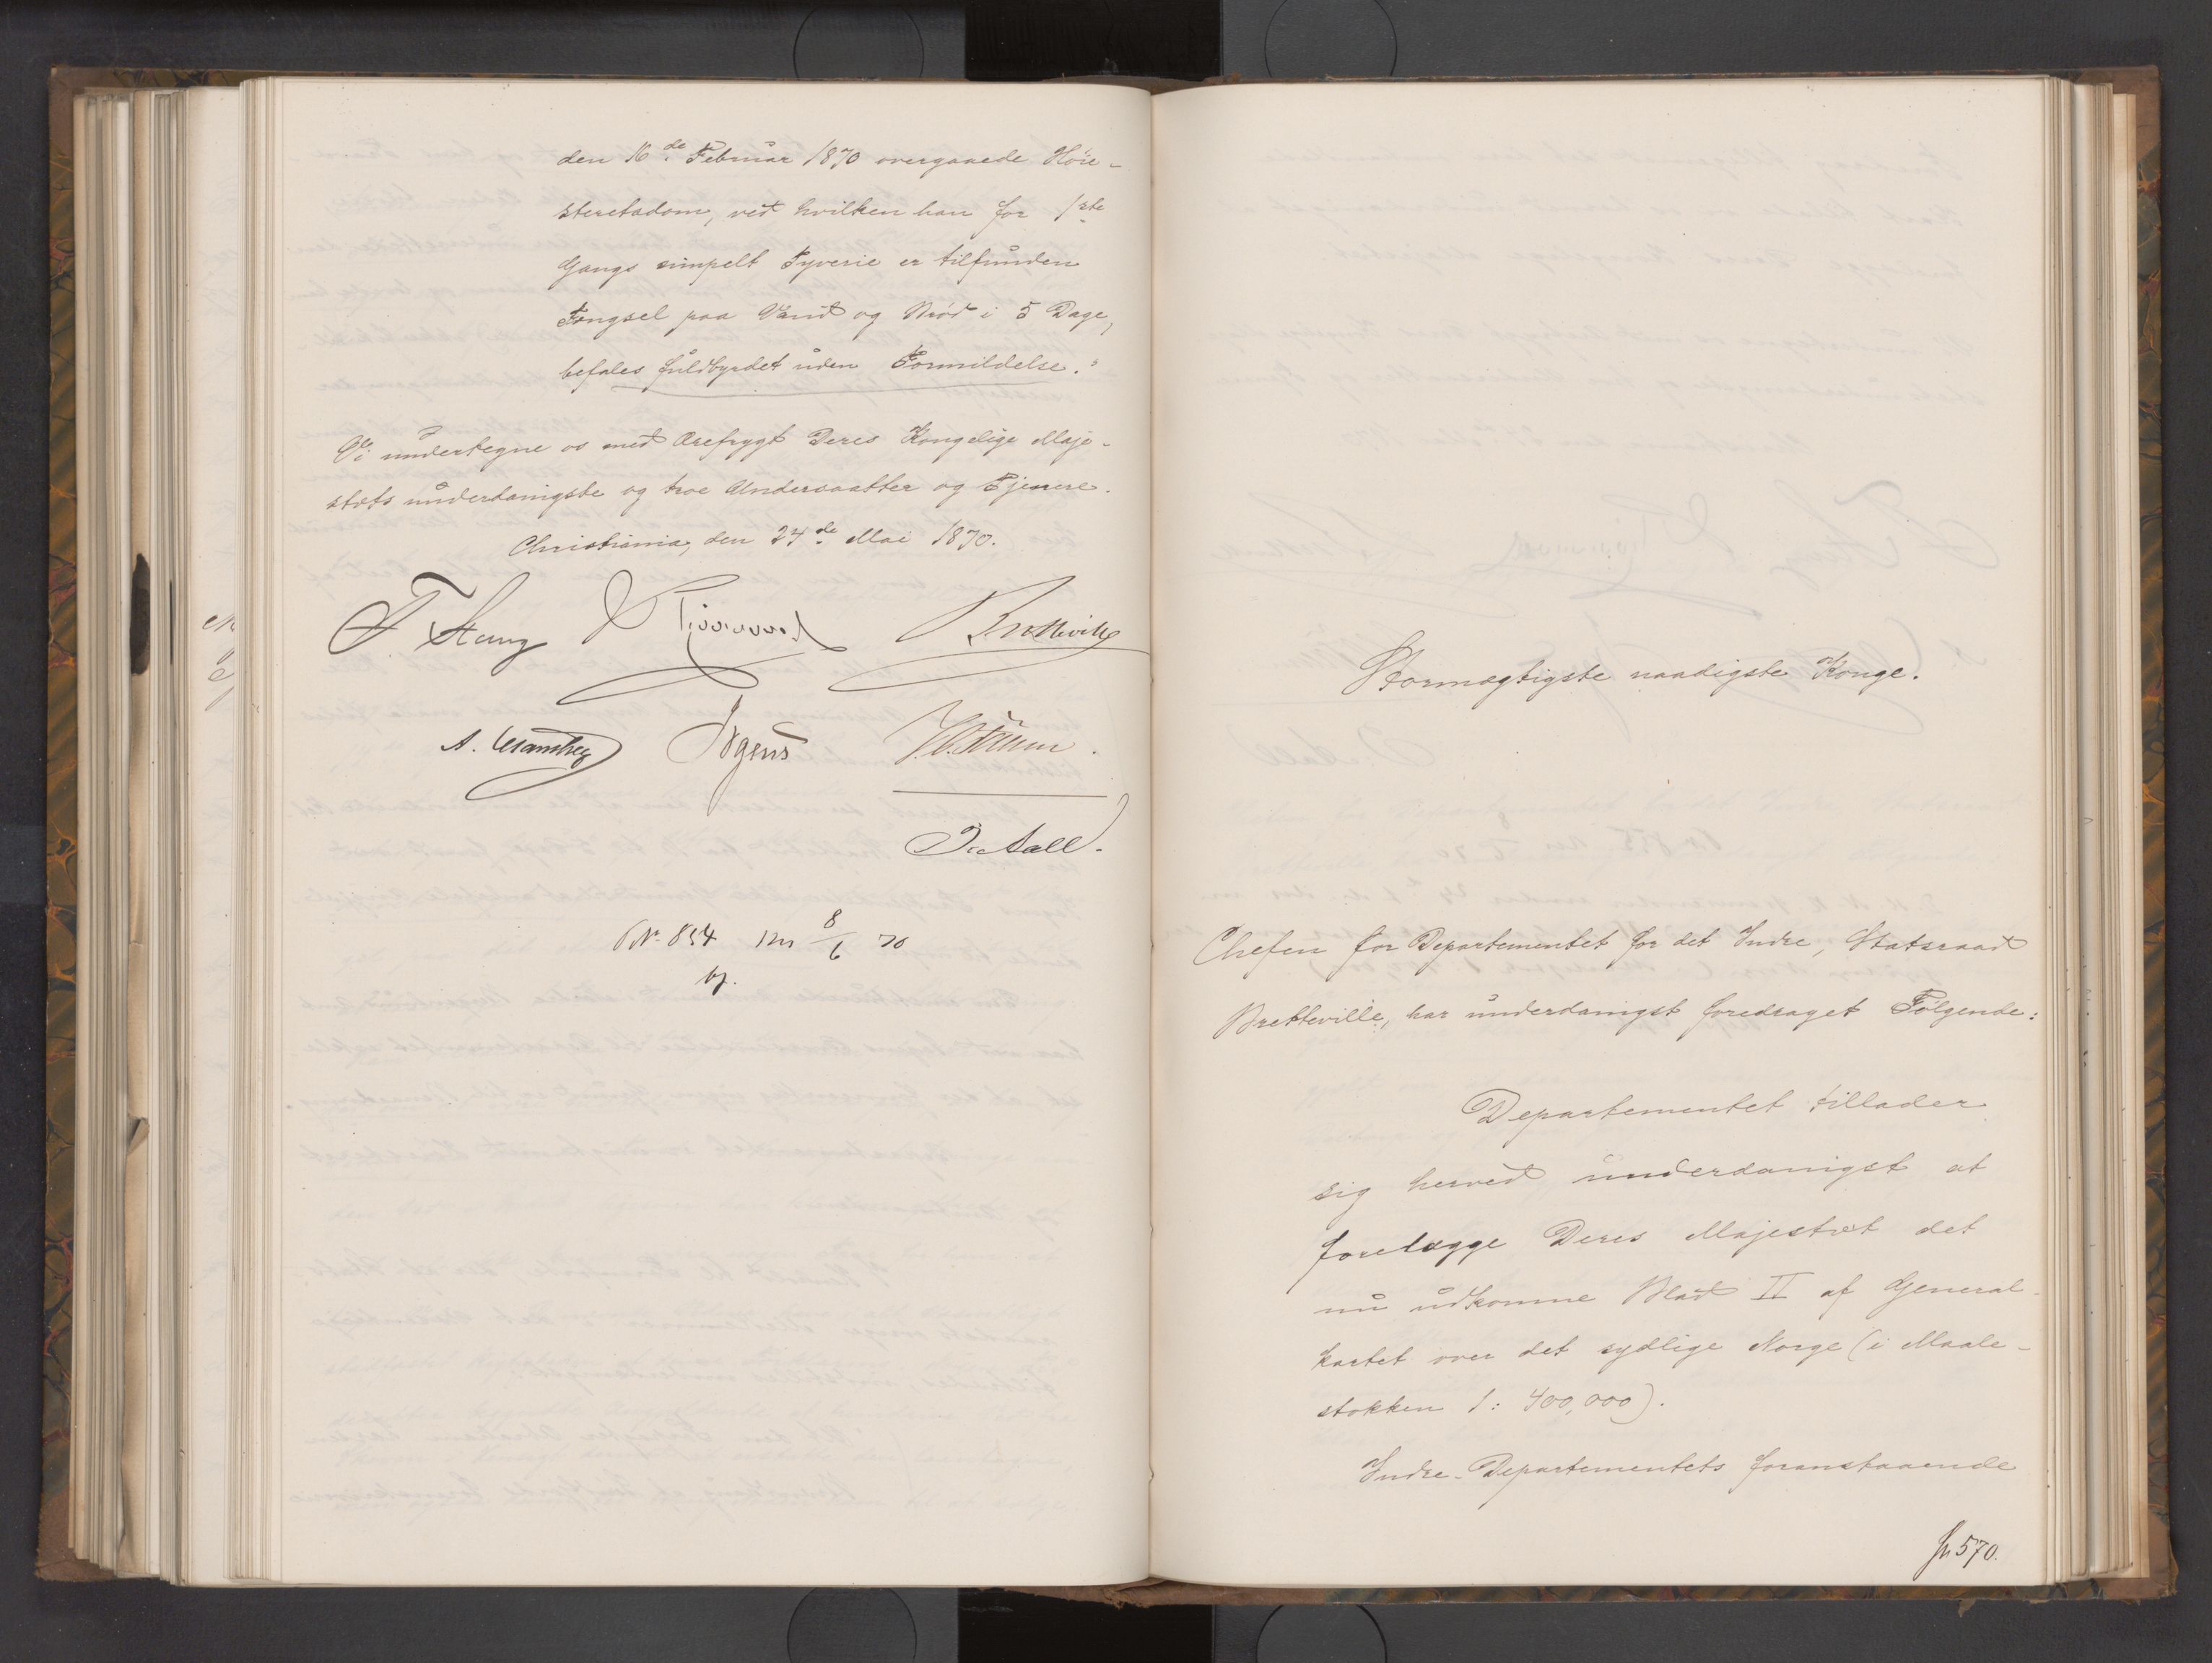 den 16de Februar 1870 overgaaede Høie-
steretsdom, ved hvilken han for 1ste
Gangs simpelt Tyverie er tilfunden
Fængsel paa Vand og Brød i 5 Dage,
befales fuldbyrdet uden Formildelse."
Vi undertegne os med Ærefrygt Deres Kongelige Maje-
stæts underdanigste og troe Undersaatter og Tjenere.
Christiania, den 24de Mai 1870.
F. Stang Bretteville
Irgens
J. Aall.
No. 854 8/6 70
Stormægtigste naadigste Konge.
Chefen for Departementet for det Indre, Statsraad
Bretteville, har underdanigst foredraget Følgende:
Departementet tillader
sig herved underdanigst at
forelægge Deres Majestæt det
nu udkomne Blad II af General-
kartet over det sydlige Norge (i Maale-
stokken 1:400,000).
Indre-Departementets foranstaaende
Jn 570.